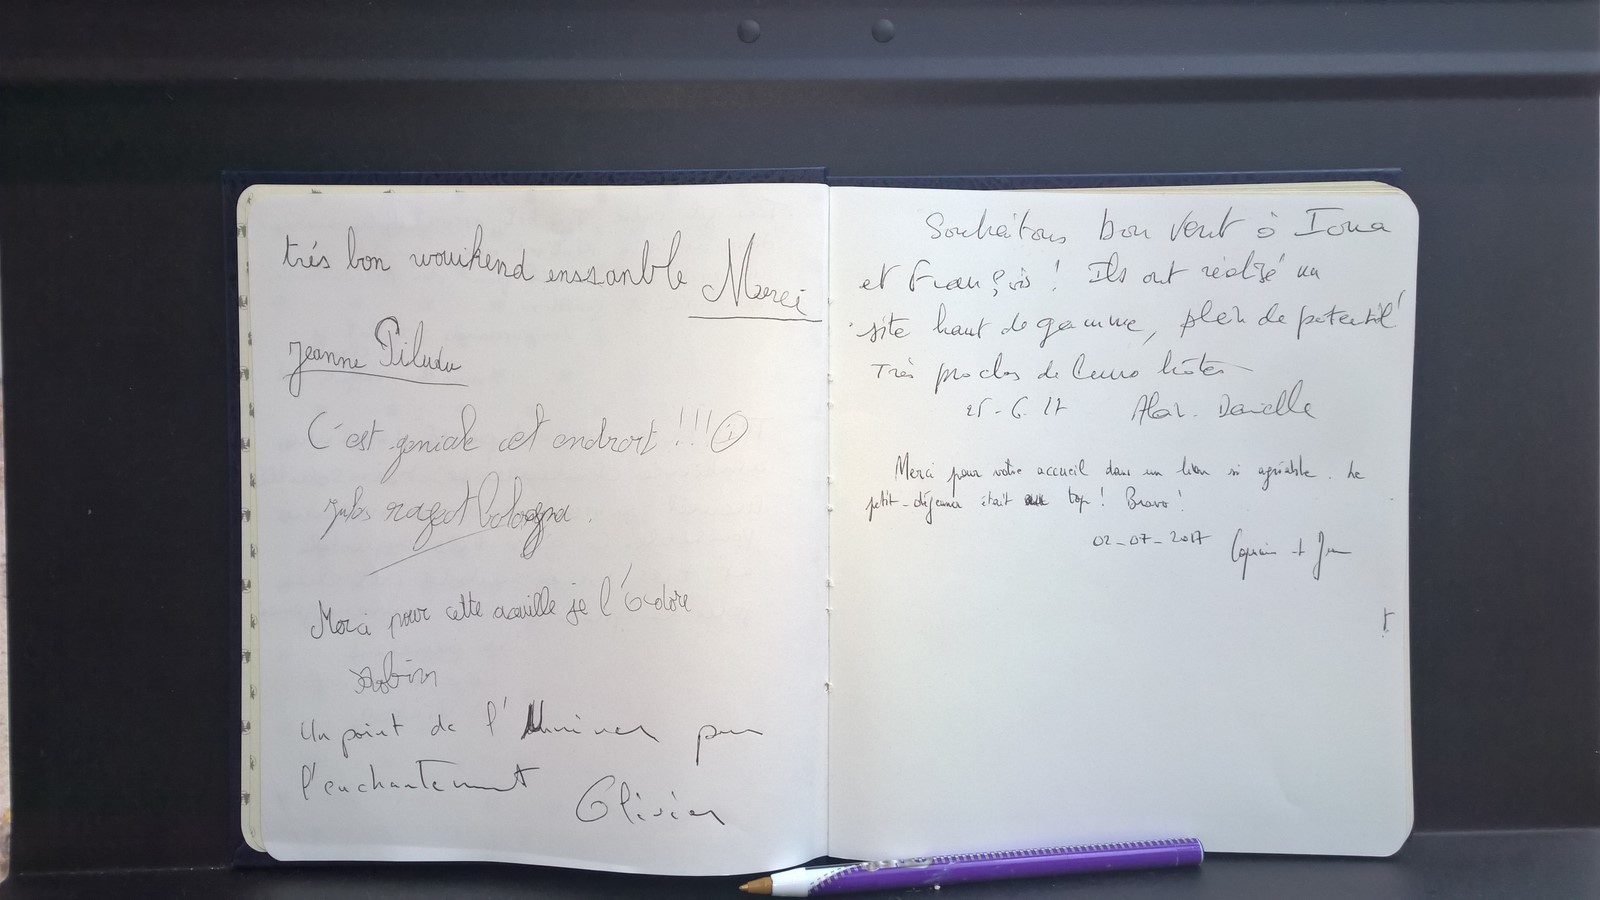 très bon wouikend enssanble Merci
Jeanne Piludu
C'est geniale cet endroit !!!
Jules
Merci pour cette acuille je l'adore
Robin
Un point de l'Univers pour
l'enchantement
Olivier
Souhaitons bon vent à Iona
et François ! Ils ont réalisé un
site haut de gamme, plein de potentiel
Très proches de leurs hôtes
25-6-17 Alain. Danielle
Merci pour votre accueil dans un lieu si agréable. Le
petit-déjeuner était top ! Bravo !
02-07-2017